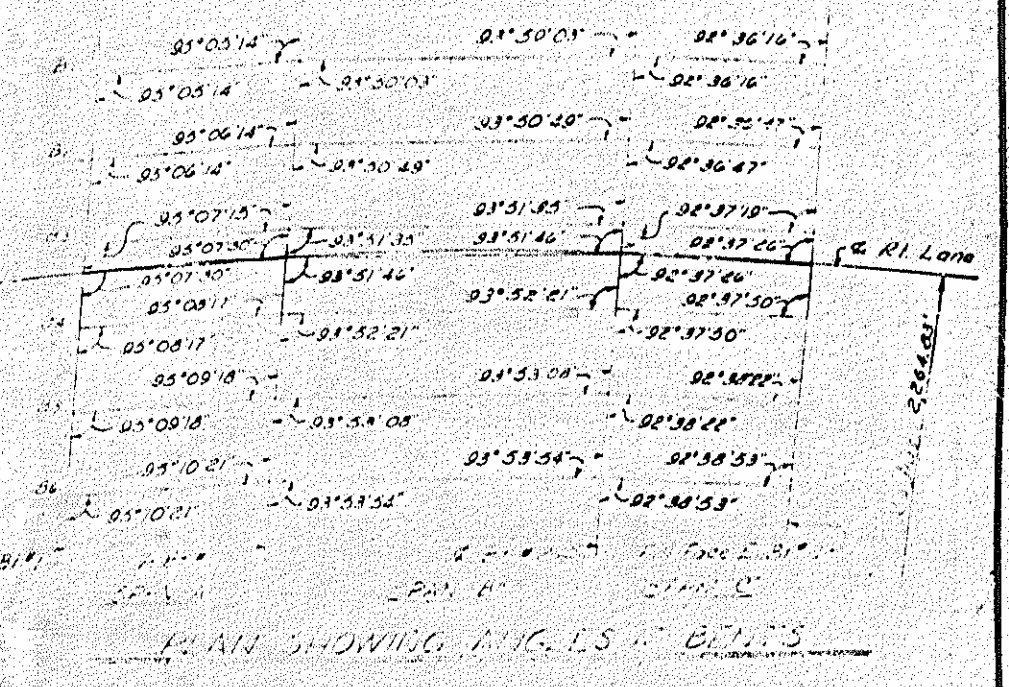 95°05'14" 93°50'03" 92°36'16"
95°05'14" 93°50'03" 92°36'16"
95°06'14" 93°50'49" 92°36'47"
95°06'14" 93°50'49" 92°36'47"
95°07'15" 93°51'35" 92°37'19"
95°07'30" 93°51'35" 93°51'46" 92°37'26" ℄ Rt. Lane
95°07'30" 93°51'46" 92°37'26"
95°08'17" 93°52'21" 92°37'50"
95°08'17" 93°52'21" 92°37'50"
95°09'18" 93°53'08" 92°38'22"
95°09'18" 93°53'08" 92°38'22"
95°10'21" 93°53'54" 92°38'53"
B6
95°10'21" 93°53'54" 92°38'53"
2,264.03'
SPAN
PLAN SHOWING ANGLES BENTS